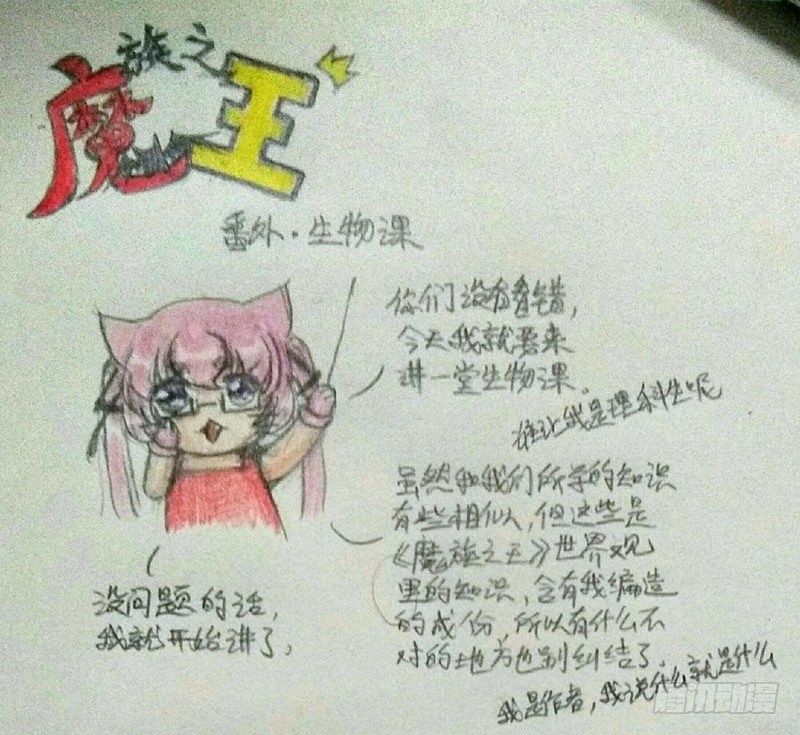 魔族之王
番外·生物课
你们没有看错,
今天我就要来
讲一堂生物课。
谁让我是理科生呢
虽然和我们所学的知识
有些相似,但这些是
《魔族之王》世界观
里的知识,含有我编造
的成份,所以有什么不
对的地方也别纠结了。
我是作者,我说什么就是什么
没问题的话,
我就开始讲了,